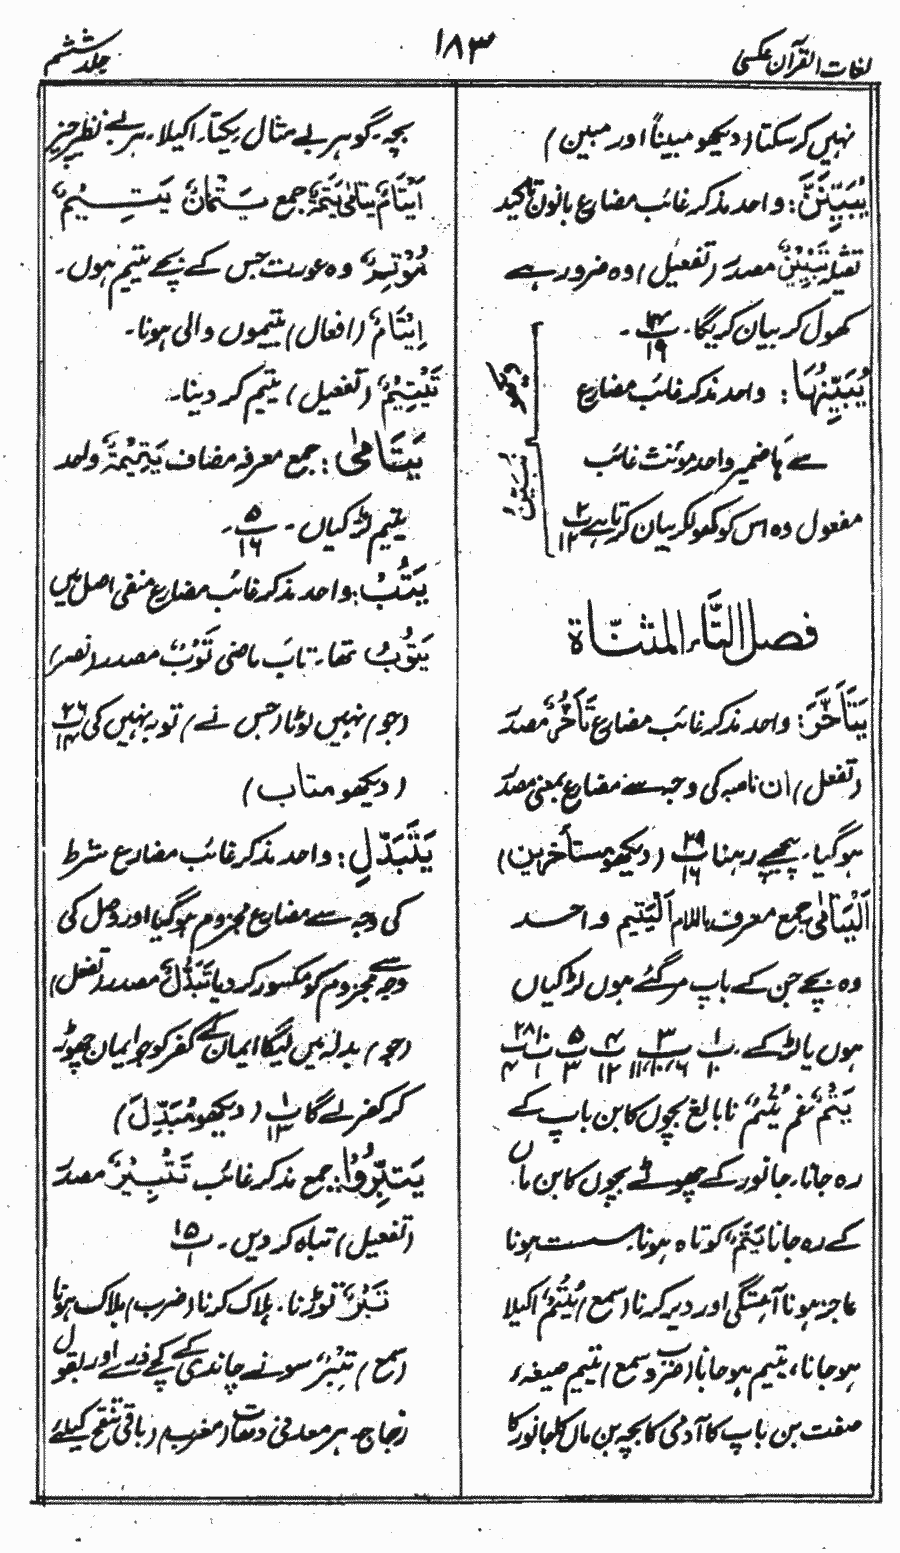 لغات القرآن عکسی
۱۸۳
جلد ششم
نہیں کر سکتا (دیکھو مبیناً اور مبین)
یُبَیِّنَنَّ: واحد مذکر غائب مضارع بانون تاکید
ثقیلہ تَبْیِیْنٌ مصدر (تفعیل) وہ ضرور سے
کھول کر بیان کریگا۔ ۱۹
یُبَیِّنُهَا: واحد مذکر غائب مضارع
سے ہَا ضمیر واحد مؤنث غائب
مفعول وہ اس کو کھولکر بیان کرتا ہے ۲ ۱۲
دیکھو
فصل التَّاء المثنّاة
یَتَأَخَّرَ: واحد مذکر غائب مضارع تَأَخُّرٌ مصدر
(تفعل) ان ناصبہ کی وجہ سے مضارع بمعنی مصدر
ہوگیا۔ پیچھے رہنا ۲۹ ۱۶ (دیکھو مستأخرین)
اَلْیَتَامٰی جمع معرف باللام اَلْیَتِیم واحد
وہ بچے جن کے باپ مر گئے ہوں لڑکیاں
ہوں یا لڑکے۔ ۱ ۳ ۴ ۵ ۱۰ ۲۸
یَتْمٌ فَمٌ یُتْمٌ نابالغ بچوں کا بن باپ کے
رہ جانا۔ جانور کے چھوٹے بچوں کا بن ماں
کے رہ جانا یَتَمٌ کوتاہ ہونا۔ سست ہونا
عاجز ہونا آہستگی اور دیر کرنا (سمع) یُتْمٌ اکیلا
ہو جانا، یتیم ہو جانا (ضرب و سمع) یتیم صیغہء
صفت بن باپ کا آدمی کا بچہ بن ماں کا جانور کا
بچہ۔ گوہر بے مثال یکتا۔ اکیلا۔ ہر بے نظیر چیز
اَیْتَامٌ یتامٰی یَتَمَةٌ جمع یَتْمَانٌ یَتِیْمٌ
مُوْتِمٌ وہ عورت جس کے بچے یتیم ہوں۔
اِیْتَامٌ (افعال) یتیموں والی ہونا۔
تَیْتِیْمٌ (تفعیل) یتیم کر دینا۔
یَتَامَی: جمع معرفہ مضاف یَتِیْمَةٌ واحد
یتیم لڑکیاں۔ ۵ ۱۶
یَتُبْ: واحد مذکر غائب مضارع منفی اصل میں
یَتُوْبُ تھا۔ تابَ ماضی تَوْبٌ مصدر (نصر)
(جو) نہیں لوٹا (جس نے) توبہ نہیں کی ۲۶ ۱۴
(دیکھو متاب)
یَتَبَدَّلِ: واحد مذکر غائب مضارع شرط
کی وجہ سے مضارع مجزوم ہوگیا اور وصل کی
وجہ سے مجزوم کو مکسور کر دیا تَبَدُّلٌ مصدر (تفعل)
(جو) بدلہ میں لیگا ایمان کے کفر کو جو ایمان چھوڑ
کر کفر لے گا ۱ ۱۳ (دیکھو مُبَدِّلَ)
یَتَبِّرُوْا: جمع مذکر غائب تَتْبِیْرٌ مصدر
(تفعیل) تباہ کر دیں۔ ۱۵ ۱
تَبْرٌ توڑنا۔ ہلاک کرنا (ضرب) ہلاک ہونا
(سمع) تِبْرٌ سونے چاندی کے کچے ذرے اور بقول
زجاج۔ ہر معدنی دھات (مغرب) (باقی تنقیح کیلئے